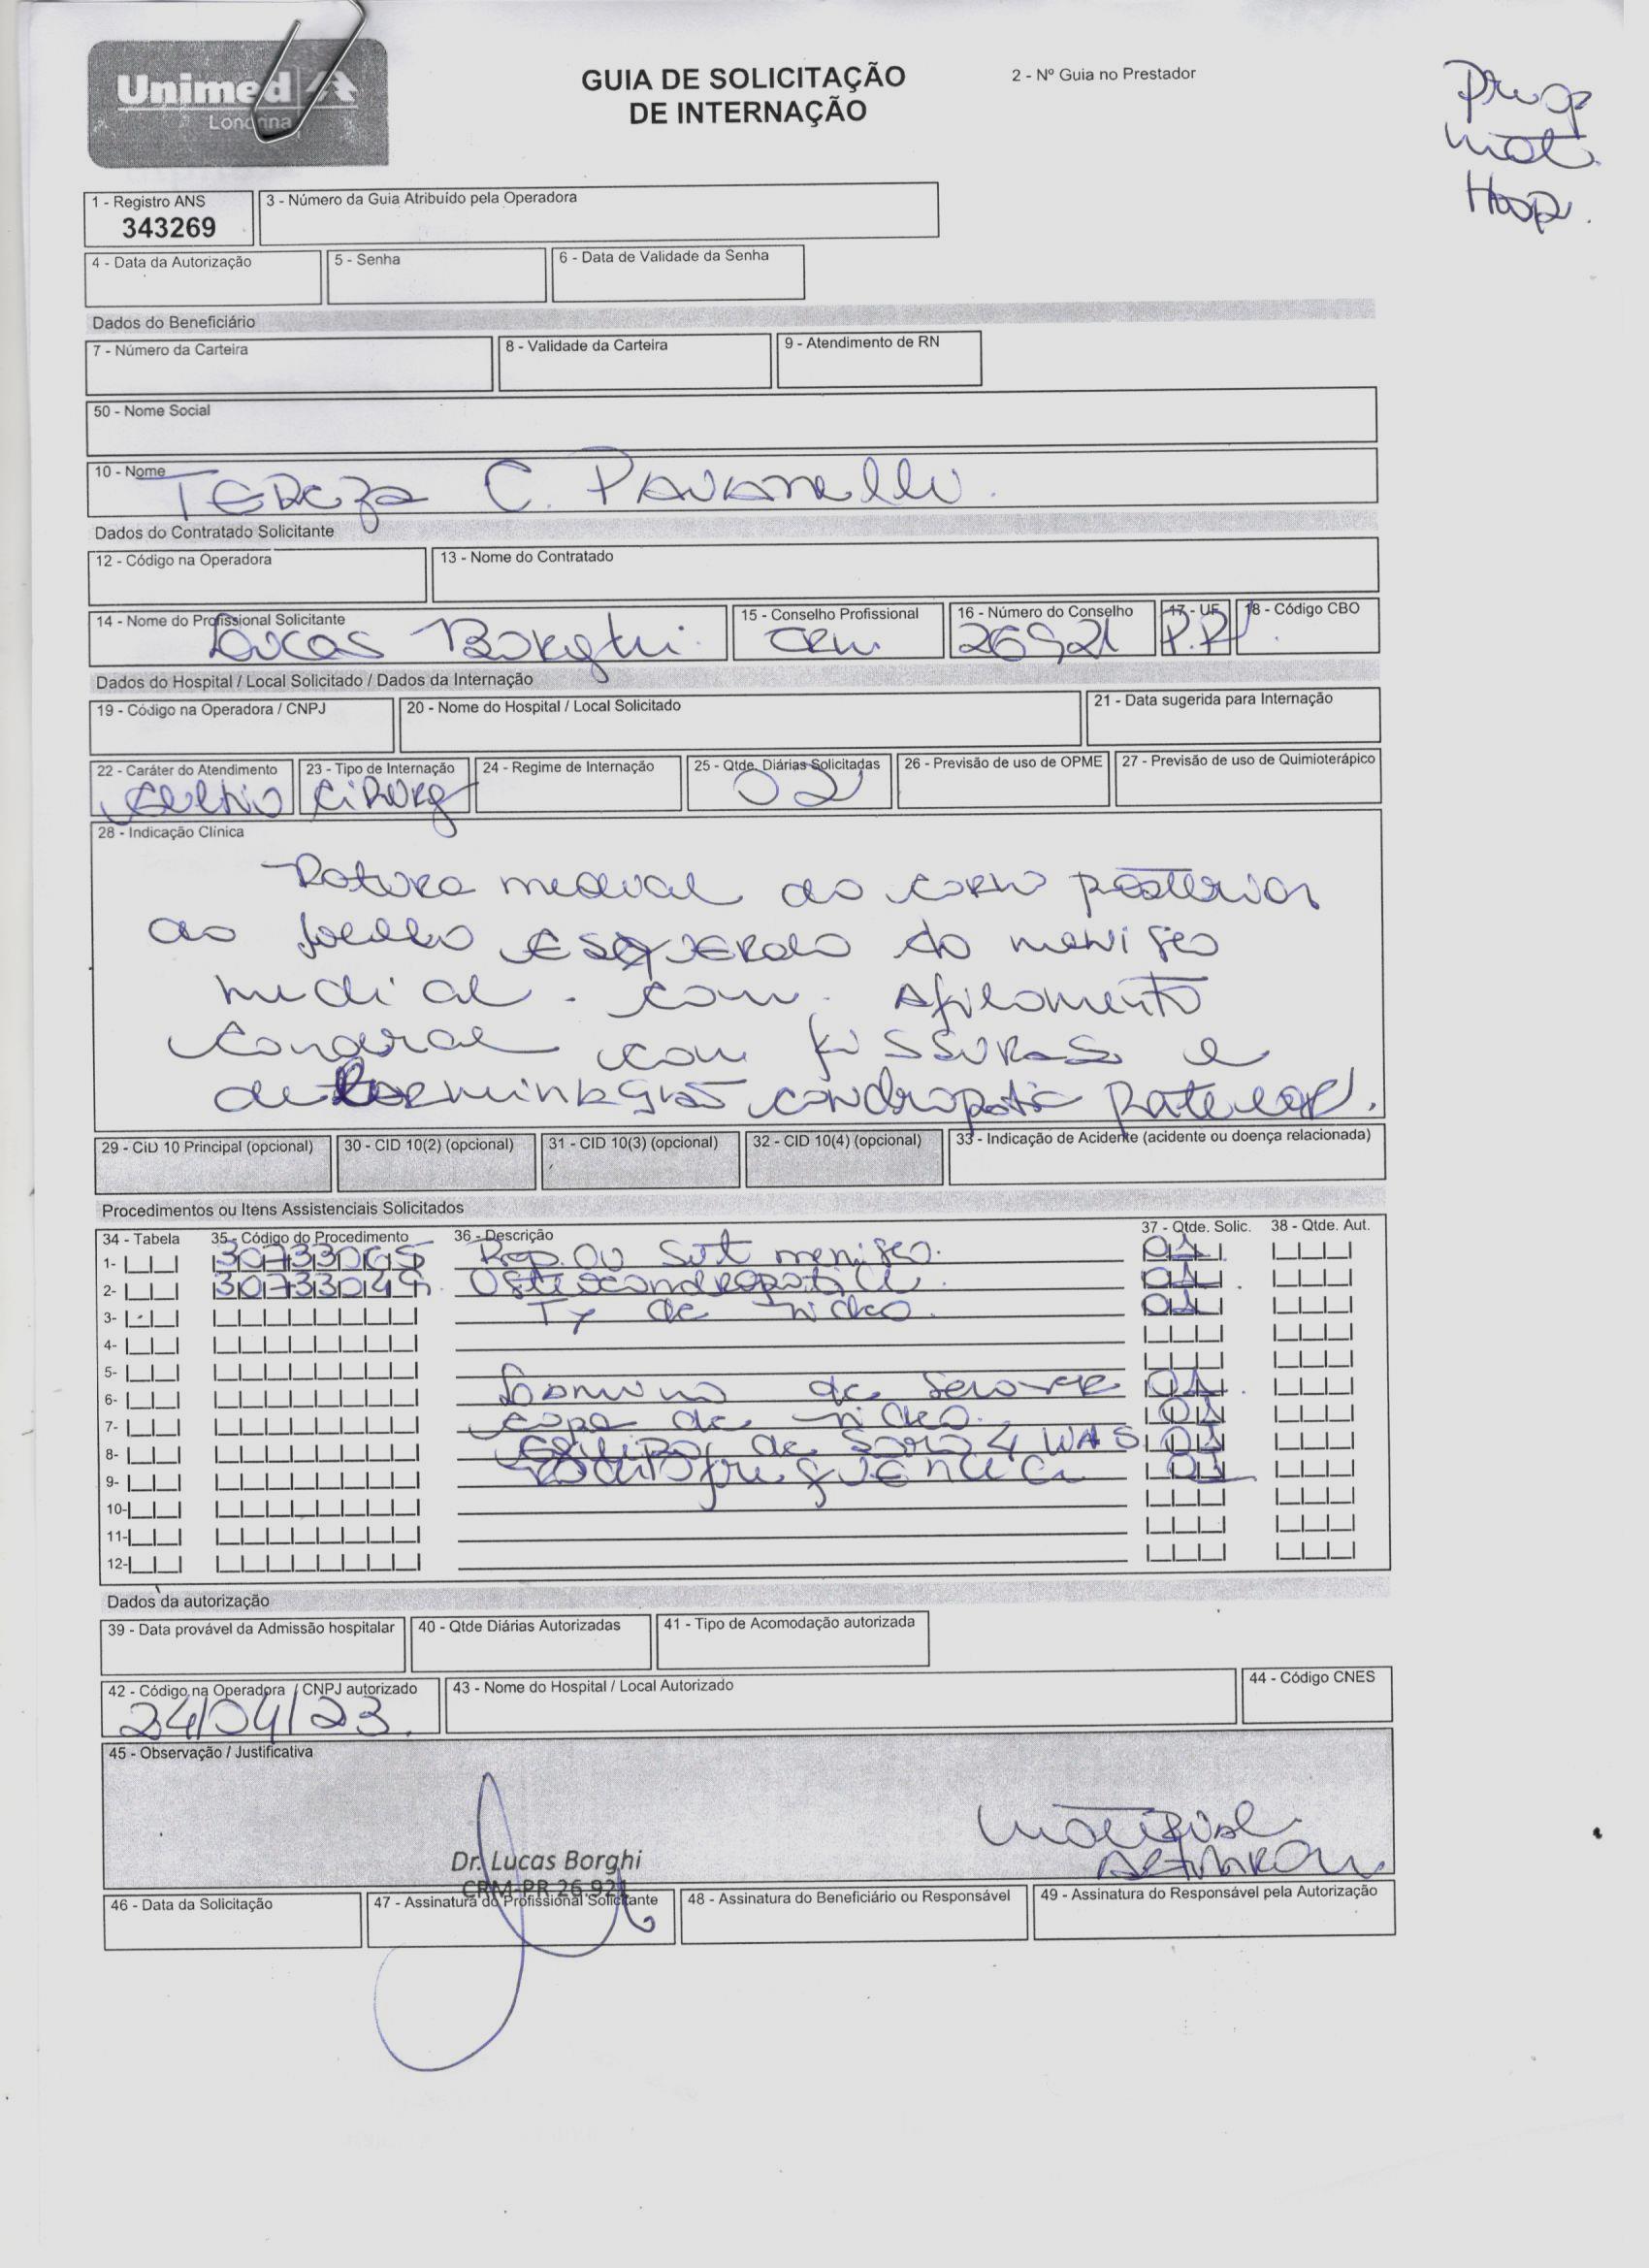 Unimed
Londrina
GUIA DE SOLICITAÇÃO
DE INTERNAÇÃO
2 - Nº Guia no Prestador
Hosp.
1 - Registro ANS
343269
3 - Número da Guia Atribuído pela Operadora
4 - Data da Autorização
5 - Senha
6 - Data de Validade da Senha
Dados do Beneficiário
7 - Número da Carteira
8 - Validade da Carteira
9 - Atendimento de RN
50 - Nome Social
10 - Nome
Tereza C. Pavanelli.
Dados do Contratado Solicitante
12 - Código na Operadora
13 - Nome do Contratado
14 - Nome do Profissional Solicitante
Lucas Borghi.
15 - Conselho Profissional
CRM
16 - Número do Conselho
26921
17 - UF
PR
18 - Código CBO
Dados do Hospital / Local Solicitado / Dados da Internação
19 - Código na Operadora / CNPJ
20 - Nome do Hospital / Local Solicitado
21 - Data sugerida para Internação
22 - Caráter do Atendimento
23 - Tipo de Internação
Cirurg
24 - Regime de Internação
25 - Qtde. Diárias Solicitadas
02
26 - Previsão de uso de OPME
27 - Previsão de uso de Quimioterápico
28 - Indicação Clínica
Rotura medial do corno posterior
do joelho esquerdo do menisco
medial. com. Afilamento
condral com fissuras e
condropatia patelar.
29 - CID 10 Principal (opcional)
30 - CID 10(2) (opcional)
31 - CID 10(3) (opcional)
32 - CID 10(4) (opcional)
33 - Indicação de Acidente (acidente ou doença relacionada)
Procedimentos ou Itens Assistenciais Solicitados
34 - Tabela
35 - Código do Procedimento
36 - Descrição
37 - Qtde. Solic.
38 - Qtde. Aut.
1- 30733065 Rep. ou Sut menisco. 01
2- 30733049 Osteocondroplastia. 01
3- Tx de vídeo. 01
4-
5-
6- Lamina de Shaver 01
7- capa de vídeo. 01
8- Equipo de Soro 4 VIAS 01
9- Radiofrequencia 01
10-
11-
12-
Dados da autorização
39 - Data provável da Admissão hospitalar
40 - Qtde Diárias Autorizadas
41 - Tipo de Acomodação autorizada
42 - Código na Operadora / CNPJ autorizado
24/04/23
43 - Nome do Hospital / Local Autorizado
44 - Código CNES
45 - Observação / Justificativa
Dr. Lucas Borghi
CRM-PR 26.921
46 - Data da Solicitação
47 - Assinatura do Profissional Solicitante
48 - Assinatura do Beneficiário ou Responsável
49 - Assinatura do Responsável pela Autorização